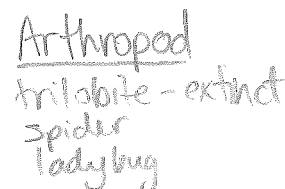 Arthropod
trilobite - extinct
spider
ladybug